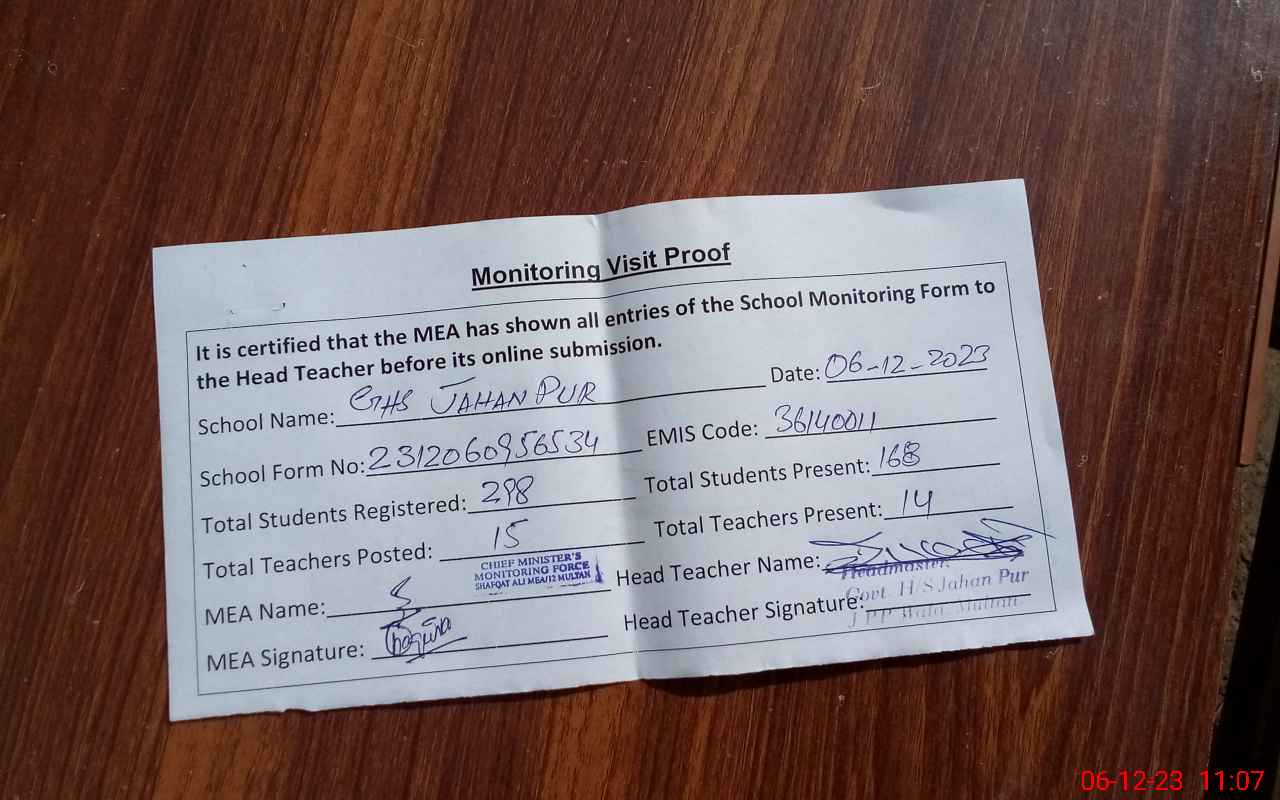 Monitoring Visit Proof
It is certified that the MEA has shown all entries of the School Monitoring Form to
the Head Teacher before its online submission.
School Name: GHS JAHAN PUR Date: 06-12-2023
School Form No: 2312060956534 EMIS Code: 36140011
Total Students Registered: 298 Total Students Present: 168
Total Teachers Posted: 15 Total Teachers Present: 14
CHIEF MINISTER'S
MONITORING FORCE
SHAFQAT ALI MEA/12 MULTAN
MEA Name: Head Teacher Name:
Headmaster,
Govt. H/S Jahan Pur
J PP Wala, Multan.
MEA Signature: Head Teacher Signature:
06-12-23 11:07